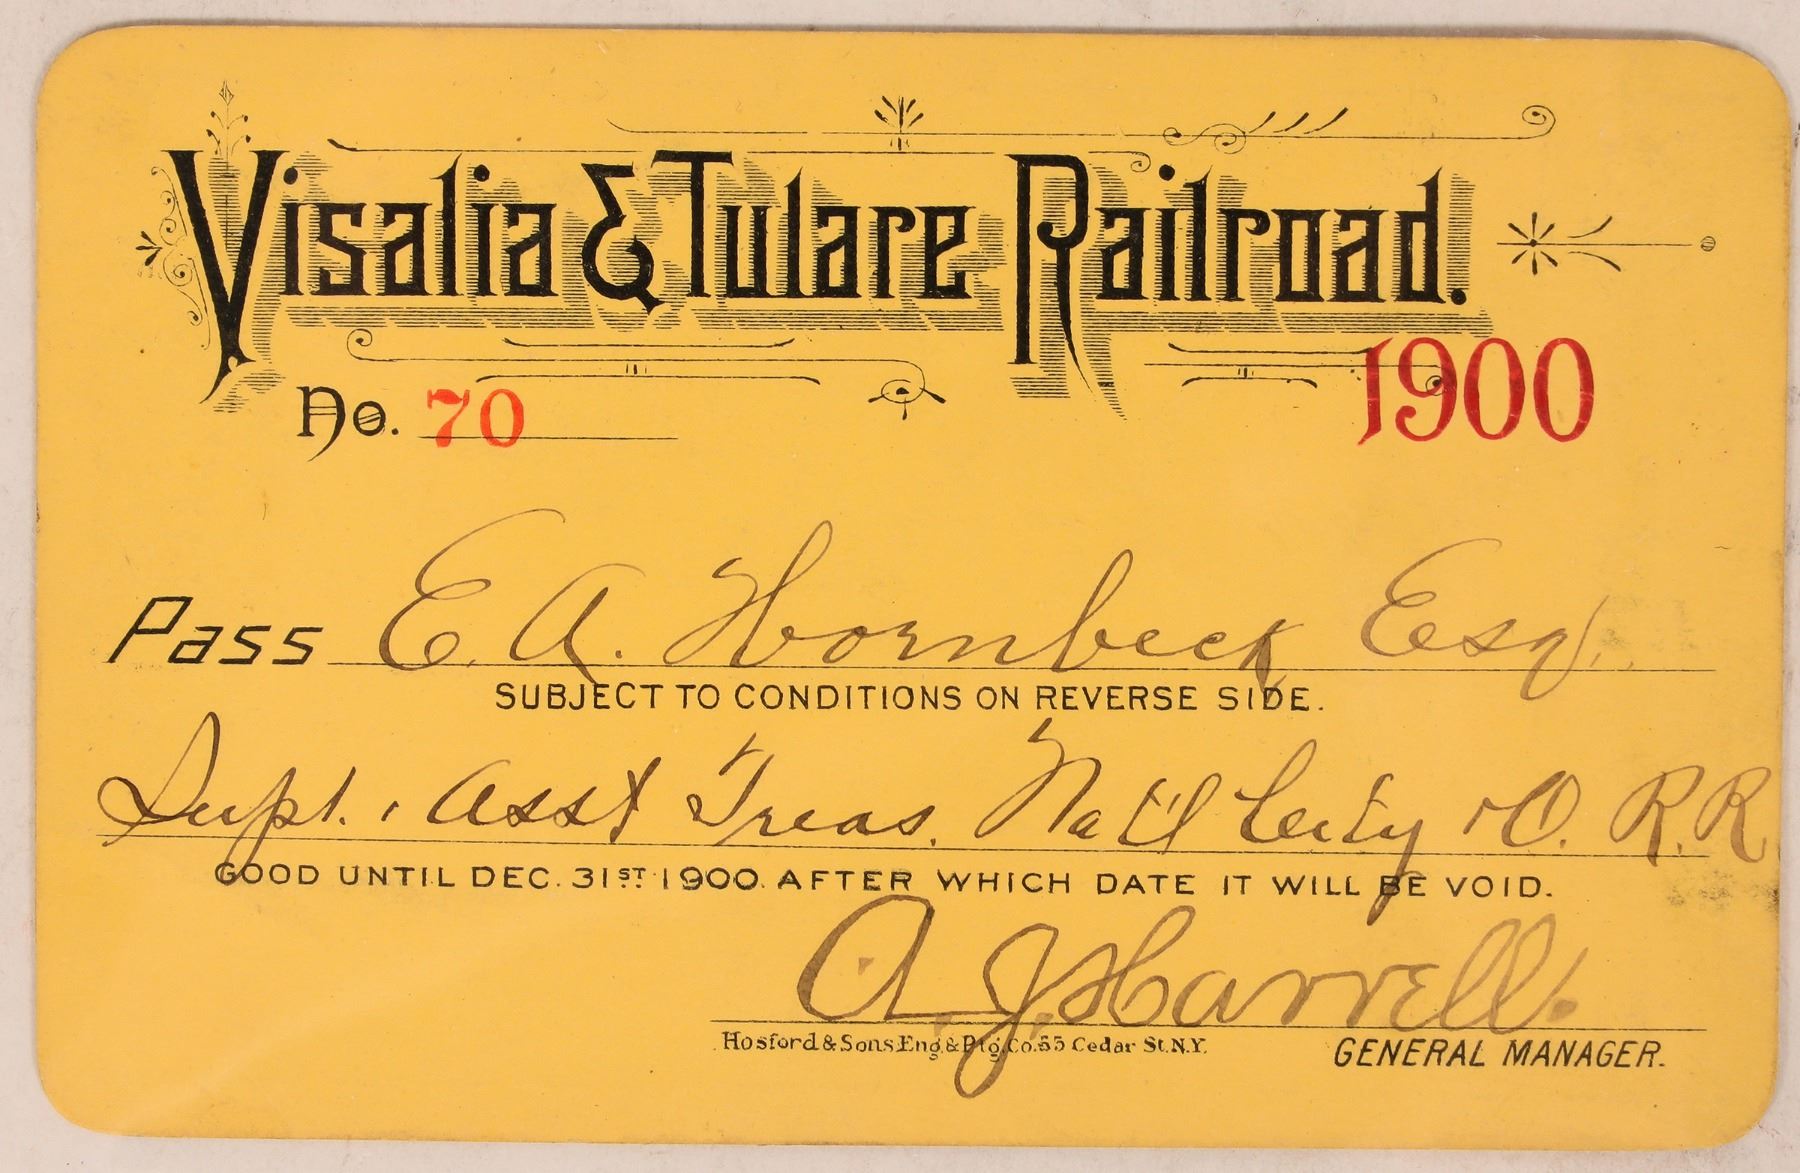 Visalia & Tulare Railroad.
No. 70
1900
Pass E. A. Hornbeck Esq.
SUBJECT TO CONDITIONS ON REVERSE SIDE.
Supt. & Asst Treas. Nat'l City & O. R.R
GOOD UNTIL DEC. 31ST 1900. AFTER WHICH DATE IT WILL BE VOID.
A. J. Harrell.
Hosford & Sons Eng. & Ptg. Co. 55 Cedar St. N.Y.
GENERAL MANAGER.